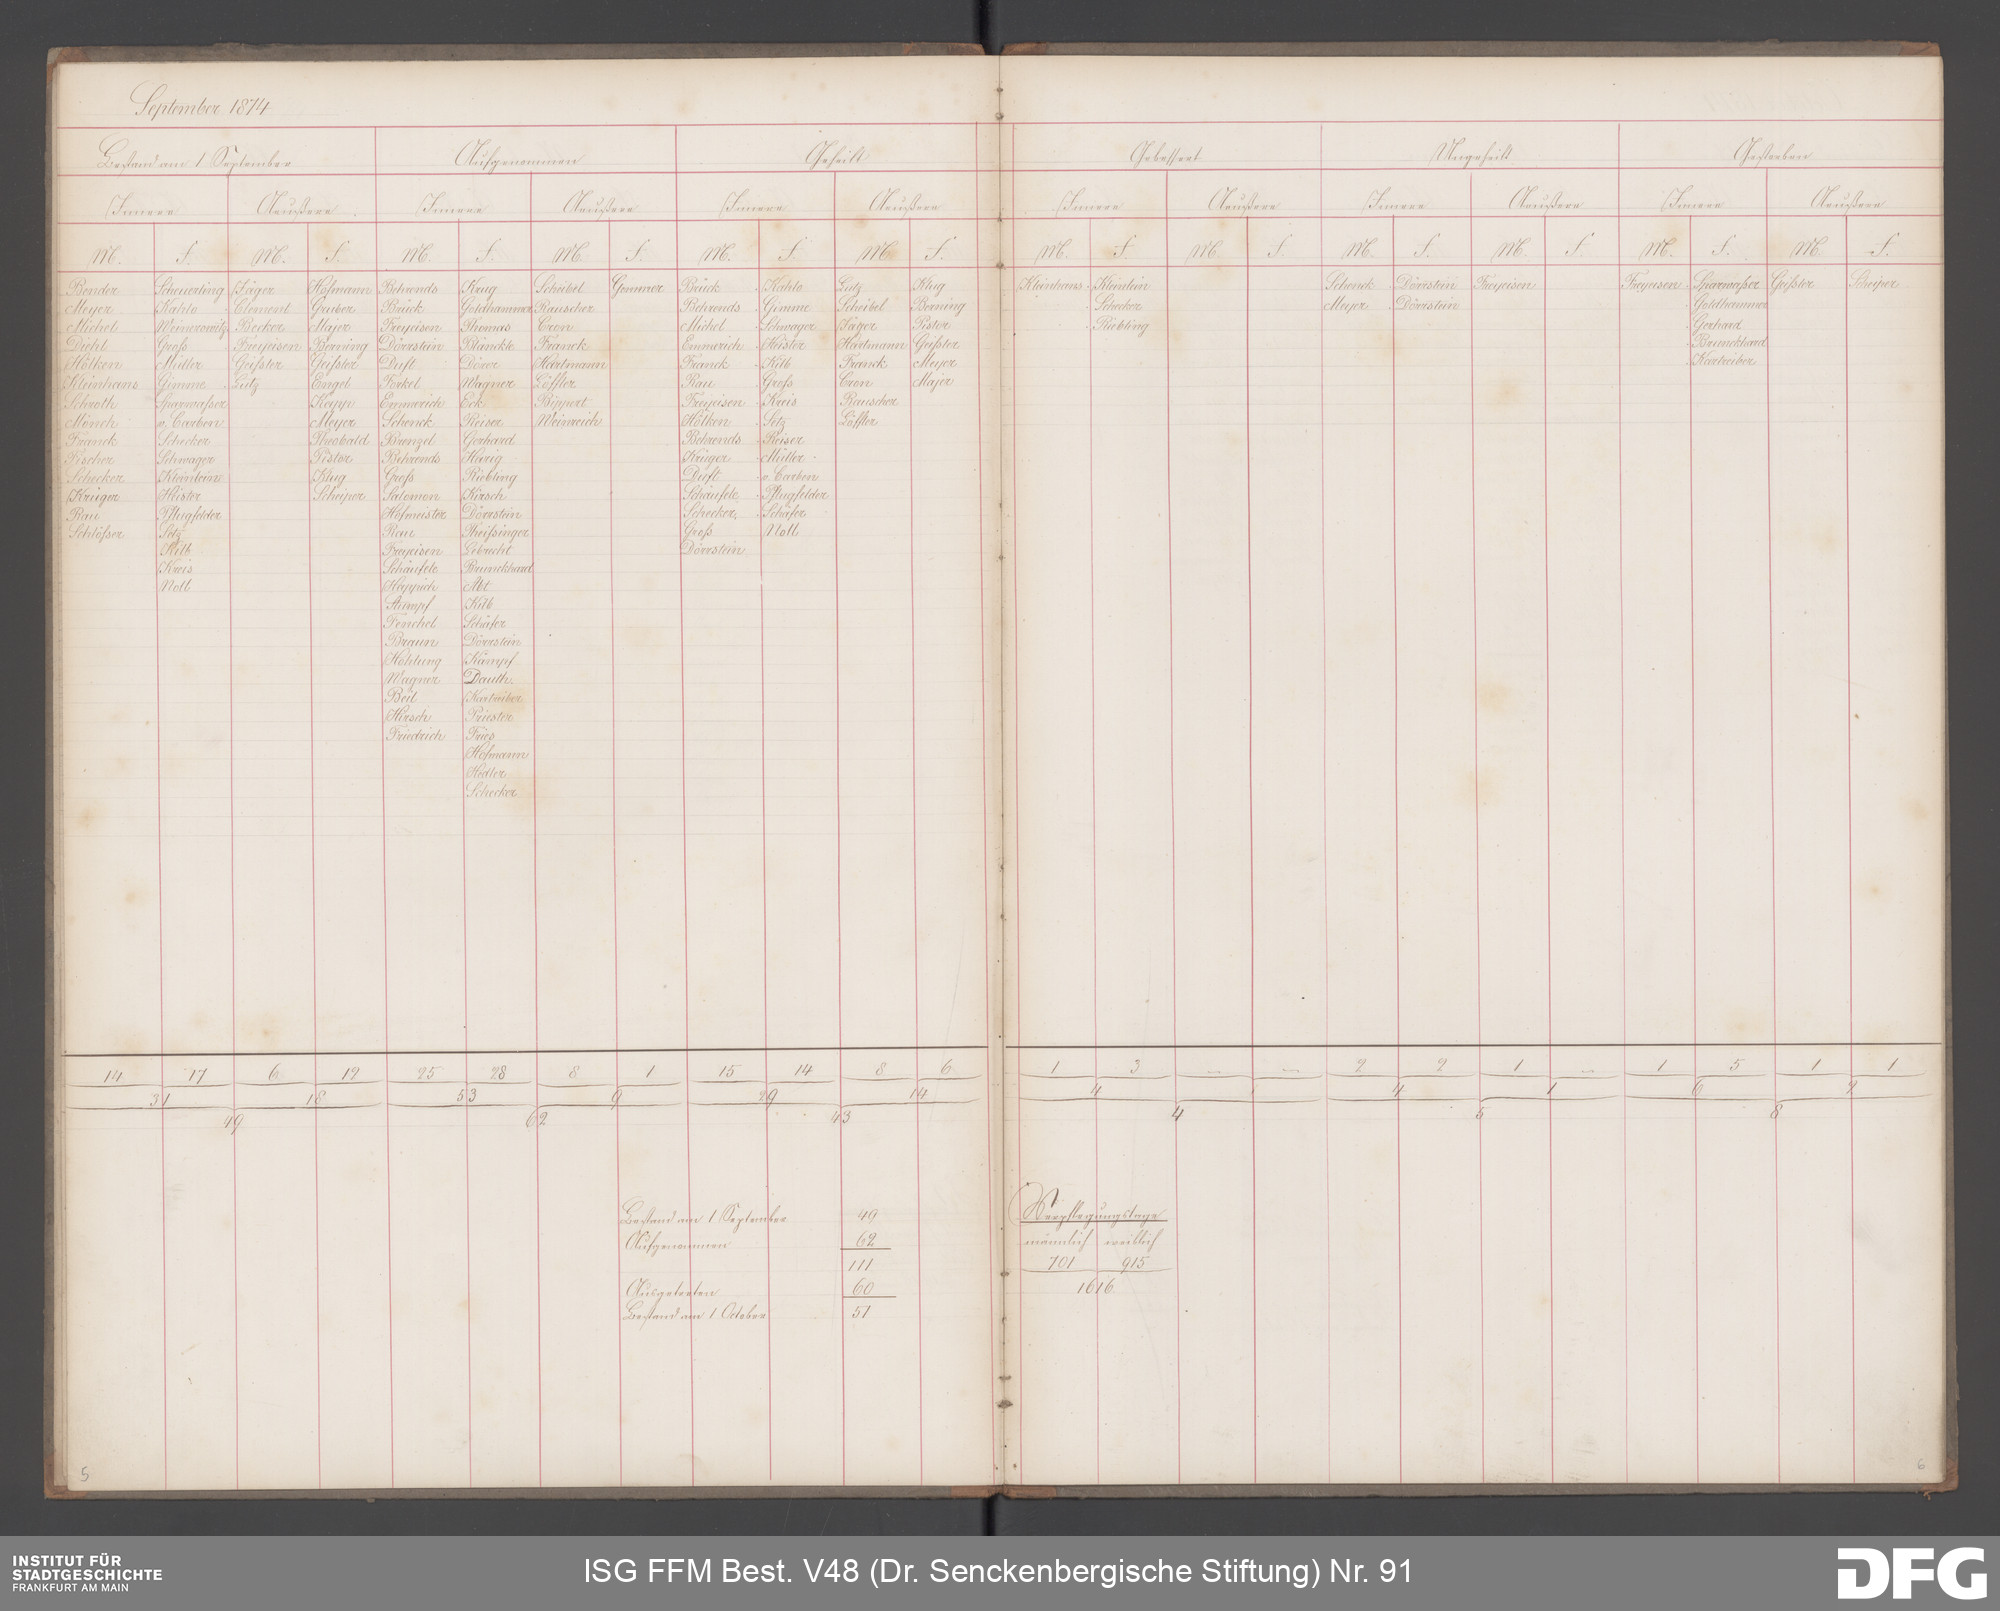 September 1874
Bestand am 1 September Aufgenommen Geheilt Gebessert Ungeheilt Gestorben
Innere Aeußere Innere Aeußere Innere Aeußere Innere Aeußere Innere Aeußere Innere Aeußere
M. F. M. F. M. F. M. F. M. F. M. F. M. F. M. F. M. F. M. F. M. F. M. F.
Bender Scheuerling Jäger Hofmann Behrends Krug Scheibel Gemmer Brück Kahlo Lutz Klug Kleinhans Kleinlein Schenck Dörrstein Freyeisen Freyeisen Sparwaßer Geißler Scheyer
Meyer Kahlo Clement Gruber Brück Goldhammer Rauscher Behrends Gimme Scheibel Berning Schecker Meyer Dörrstein Goldhammer
Michel Weinerowitz Becker Majer Freyeisen Thomas Cron Michel Schwager Jäger Pistor Riebling Gerhard
Diehl Groß Freyeisen Berning Dörrstein Bünckle Franck Emmerich Heister Hartmann Geißler Brunckhard
Hölken Müller Geißler Geißler Duft Dörer Hartmann Franck Kilb Franck Meyer Kartreiber
Kleinhans Gimme Lutz Engel Forkel Wagner Löffler Rau Groß Cron Majer
Schroth Sparwaßer Kopp Emmerich Eck Bippert Freyeisen Kreis Rauscher
Mönch v. Carben Meyer Schenck Reiser Weinreich Hölken Setz Löffler
Franck Schecker Theobald Brengel Gerhard Behrends Reiser
Fischer Schwager Pistor Behrends Heirig Krüger Müller
Schecker Kleinlein Klug Groß Riebling Duft v. Carben
Krüger Heister Scheyer Salomon Kirsch Schäufele Pflugfelder
Rau Pflugfelder Hofmeister Dörrstein Schecker Schäfer
Schlößer Setz Rau Theißinger Groß Noll
Kilb Freyeisen Lebrecht Dörrstein
Kreis Schäufele Brunckhard
Noll Heppich Abt
Stumpf Kilb
Fenchel Schäfer
Braun Dörrstein
Hohlung Kämpf
Wagner Dauth
Beil Kartreiber
Hirsch Priester
Friedrich Fries
Hofmann
Hidler
Schecker
14 17 6 12 25 28 8 1 15 14 8 6 1 3 – – 2 2 1 – 1 5 1 1
31 18 53 9 29 14 4 4 1 6 2
49 62 43 4 5 8
Bestand am 1 September 49
Aufgenommen 62
111
Ausgetreten 60
Bestand am 1 October 51
Verpflegungstage
männlich weiblich
701 915
1616
5 6
INSTITUT FÜR
STADTGESCHICHTE
FRANKFURT AM MAIN
ISG FFM Best. V48 (Dr. Senckenbergische Stiftung) Nr. 91
DFG